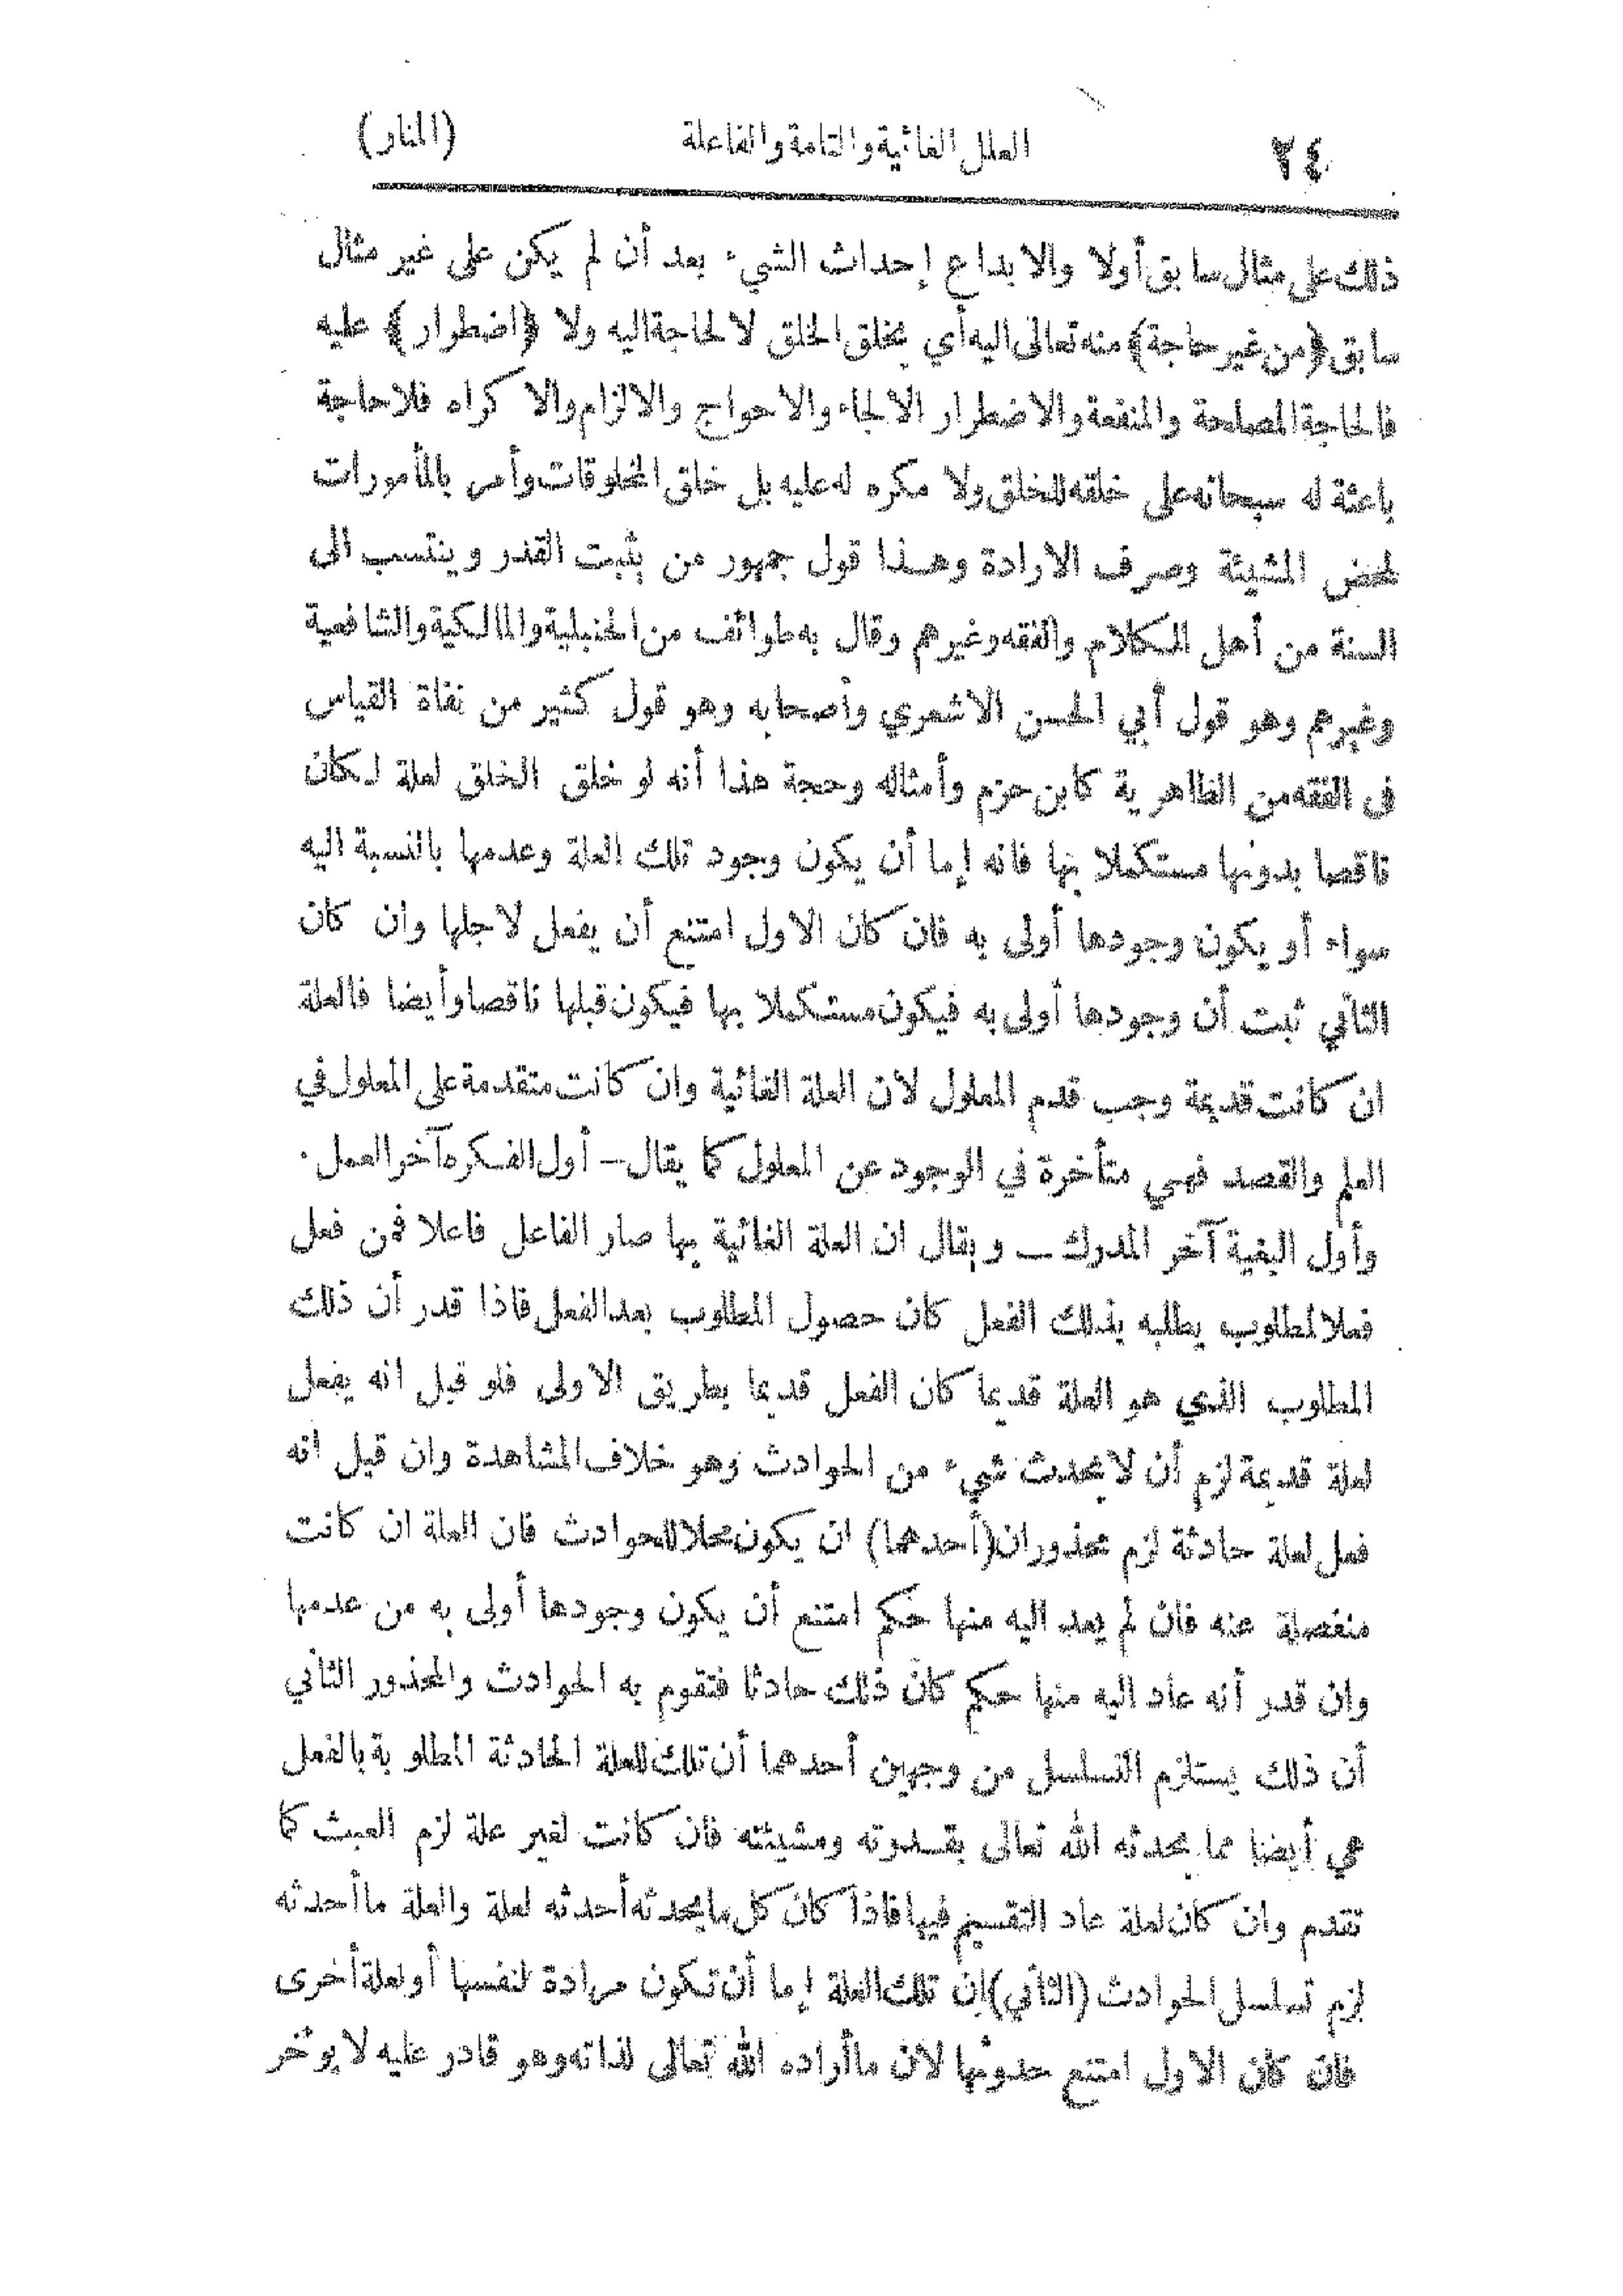 ٢٤ العلل الغائية والتامة والفاعلة (المنار)
ذلك على مثال سابق أولا والابداع إحداث الشيء بعد أن لم يكن على غير مثال
سابق (من غير حاجة) منه تعالى اليه أي بخلق الخلق لا لحاجة اليه ولا (اضطرار) عليه
فالحاجة المصلحة والمنفعة والاضطرار الالجاء والاحواج والالزام والاكراه فلا حاجة
باعثة له سبحانه على خلقه للخلق ولا مكره له عليه بل خلق المخلوقات وأمر بالمأمورات
لمحض المشيئة وصرف الارادة وهذا قول جمهور من يثبت القدر وينتسب الى
السنة من أهل الكلام والفقه وغيرهم وقال به طوائف من الحنبلية والمالكية والشافعية
وغيرهم وهو قول أبي الحسن الاشعري وأصحابه وهو قول كثير من نفاة القياس
في الفقه من الظاهرية كابن حزم وأمثاله وحجة هذا أنه لو خلق الخلق لعلة لكان
ناقصا بدونها مستكملا بها فانه إما أن يكون وجود تلك العلة وعدمها بالنسبة اليه
سواء أو يكون وجودها أولى به فان كان الاول امتنع أن يفعل لاجلها وان كان
الثاني ثبت أن وجودها أولى به فيكون مستكملا بها فيكون قبلها ناقصا وأيضا فالعلة
ان كانت قديمة وجب قدم المعلول لان العلة الغائية وان كانت متقدمة على المعلول في
العلم والقصد فهي متأخرة في الوجود عن المعلول كما يقال – أول الفكره آخر العمل .
وأول البغية آخر المدرك – ويقال ان العلة الغائية بها صار الفاعل فاعلا فمن فعل
فعلا لمطلوب يطلبه بذلك الفعل كان حصول المطلوب بعد الفعل فاذا قدر أن ذلك
المطلوب الذي هو العلة قديما كان الفعل قديما بطريق الاولى فلو قيل انه يفعل
لعلة قديمة لزم أن لا يحدث شيء من الحوادث وهو خلاف المشاهدة وان قيل انه
فعل لعلة حادثة لزم محذوران (أحدهما) ان يكون محلا للحوادث فان العلة ان كانت
منفصلة عنه فان لم يعد اليه منها حكم امتنع أن يكون وجودها أولى به من عدمها
وان قدر أنه عاد اليه منها حكم كان ذلك حادثا فتقوم به الحوادث والمحذور الثاني
أن ذلك يستلزم التسلسل من وجهين أحدهما أن تلك العلة الحادثة المطلوبة بالفعل
هي أيضا مما يحدثه الله تعالى بقدوته ومشيئته فان كانت لغير علة لزم العبث كما
تقدم وان كان لعلة عاد التقسيم فيها فاذا كان كل ما يحدثه أحدثه لعلة والعلة ما أحدثه
لزم تسلسل الحوادث (الثاني) ان تلك العلة إما أن تكون مرادة لنفسها أو لعلة أخرى
فان كان الاول امتنع حدوثها لان ما أراده الله تعالى لذاته وهو قادر عليه لا يؤخر